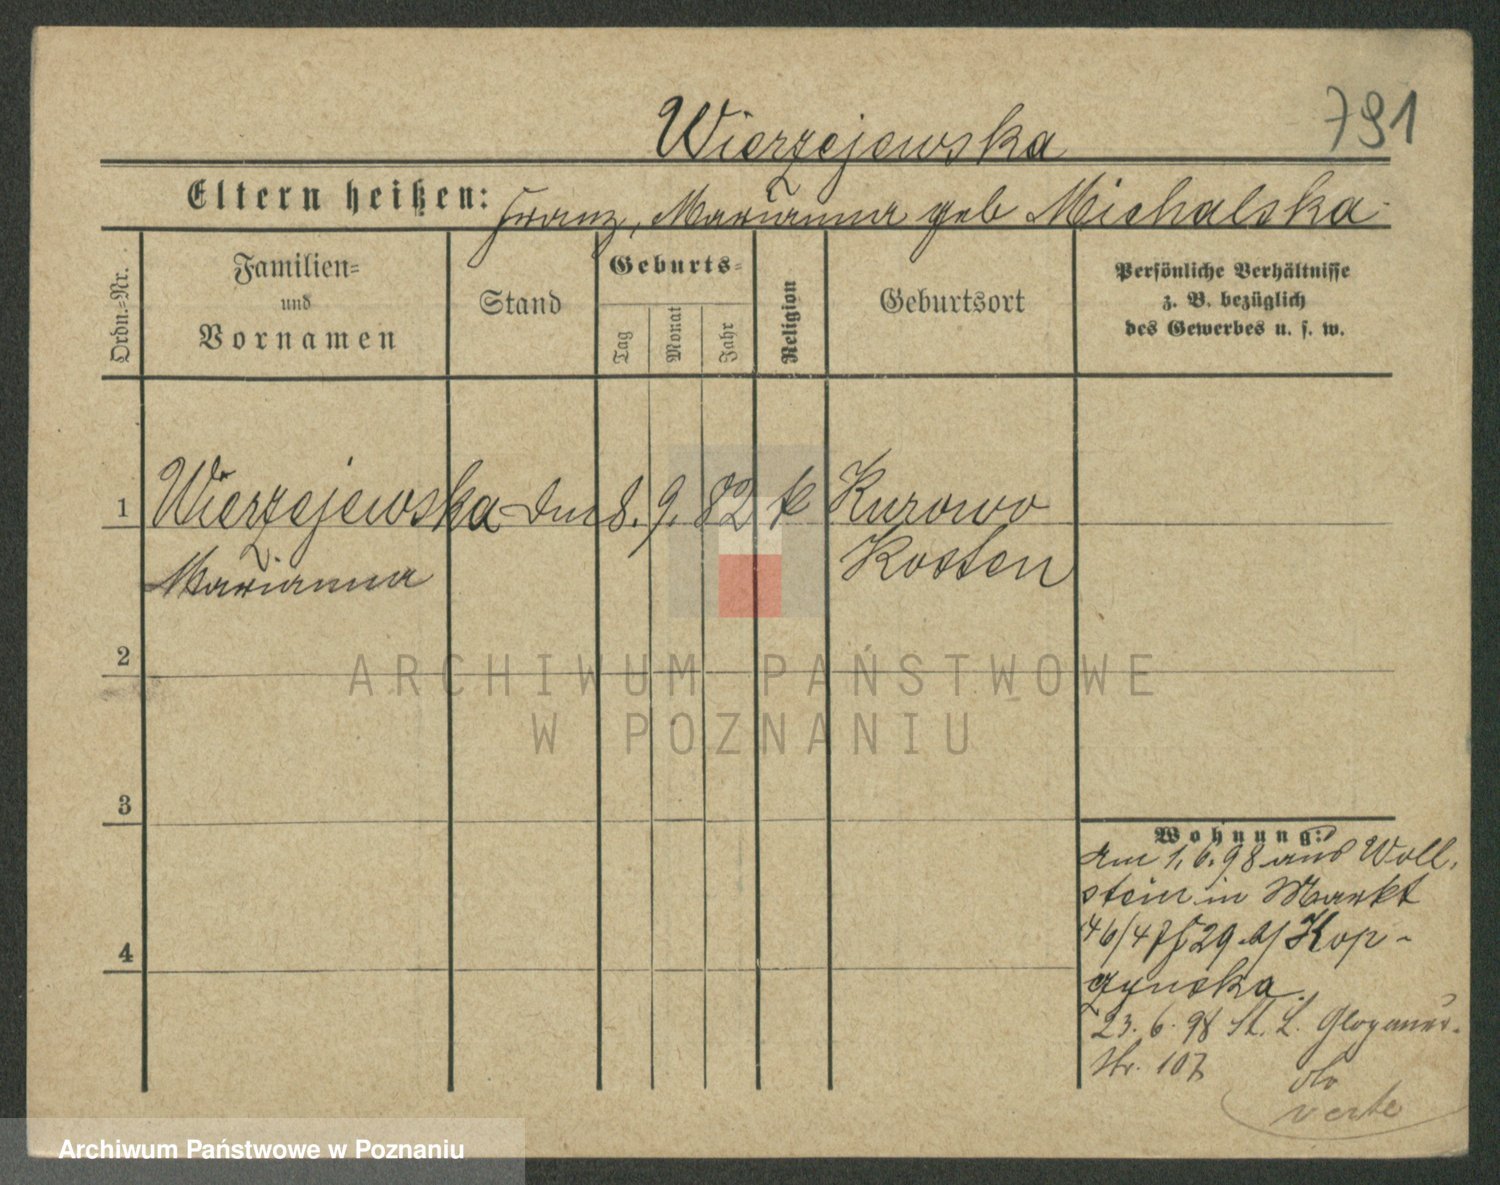 791
Wierzejewska
Eltern heißen: Franz, Marianna geb Michalska
Ordn.=Nr.
Familien=
und
Vornamen
Stand
Geburts=
Tag
Monat
Jahr
Religion
Geburtsort
Persönliche Verhältnisse
z. B. bezüglich
des Gewerbes u. s. w.
1 Wierzejewska 8. 9. 82 k Kurowo
Marianna Kosten
2
3
4
Wohnung:
Am 1.6.98 aus Woll
stein in Markt
46/47 29 b/ Kop-
zynska.
23. 6. 98 St. L. Glogauer-
str. 107
verte
ARCHIWUM PAŃSTWOWE
W POZNANIU
Archiwum Państwowe w Poznaniu